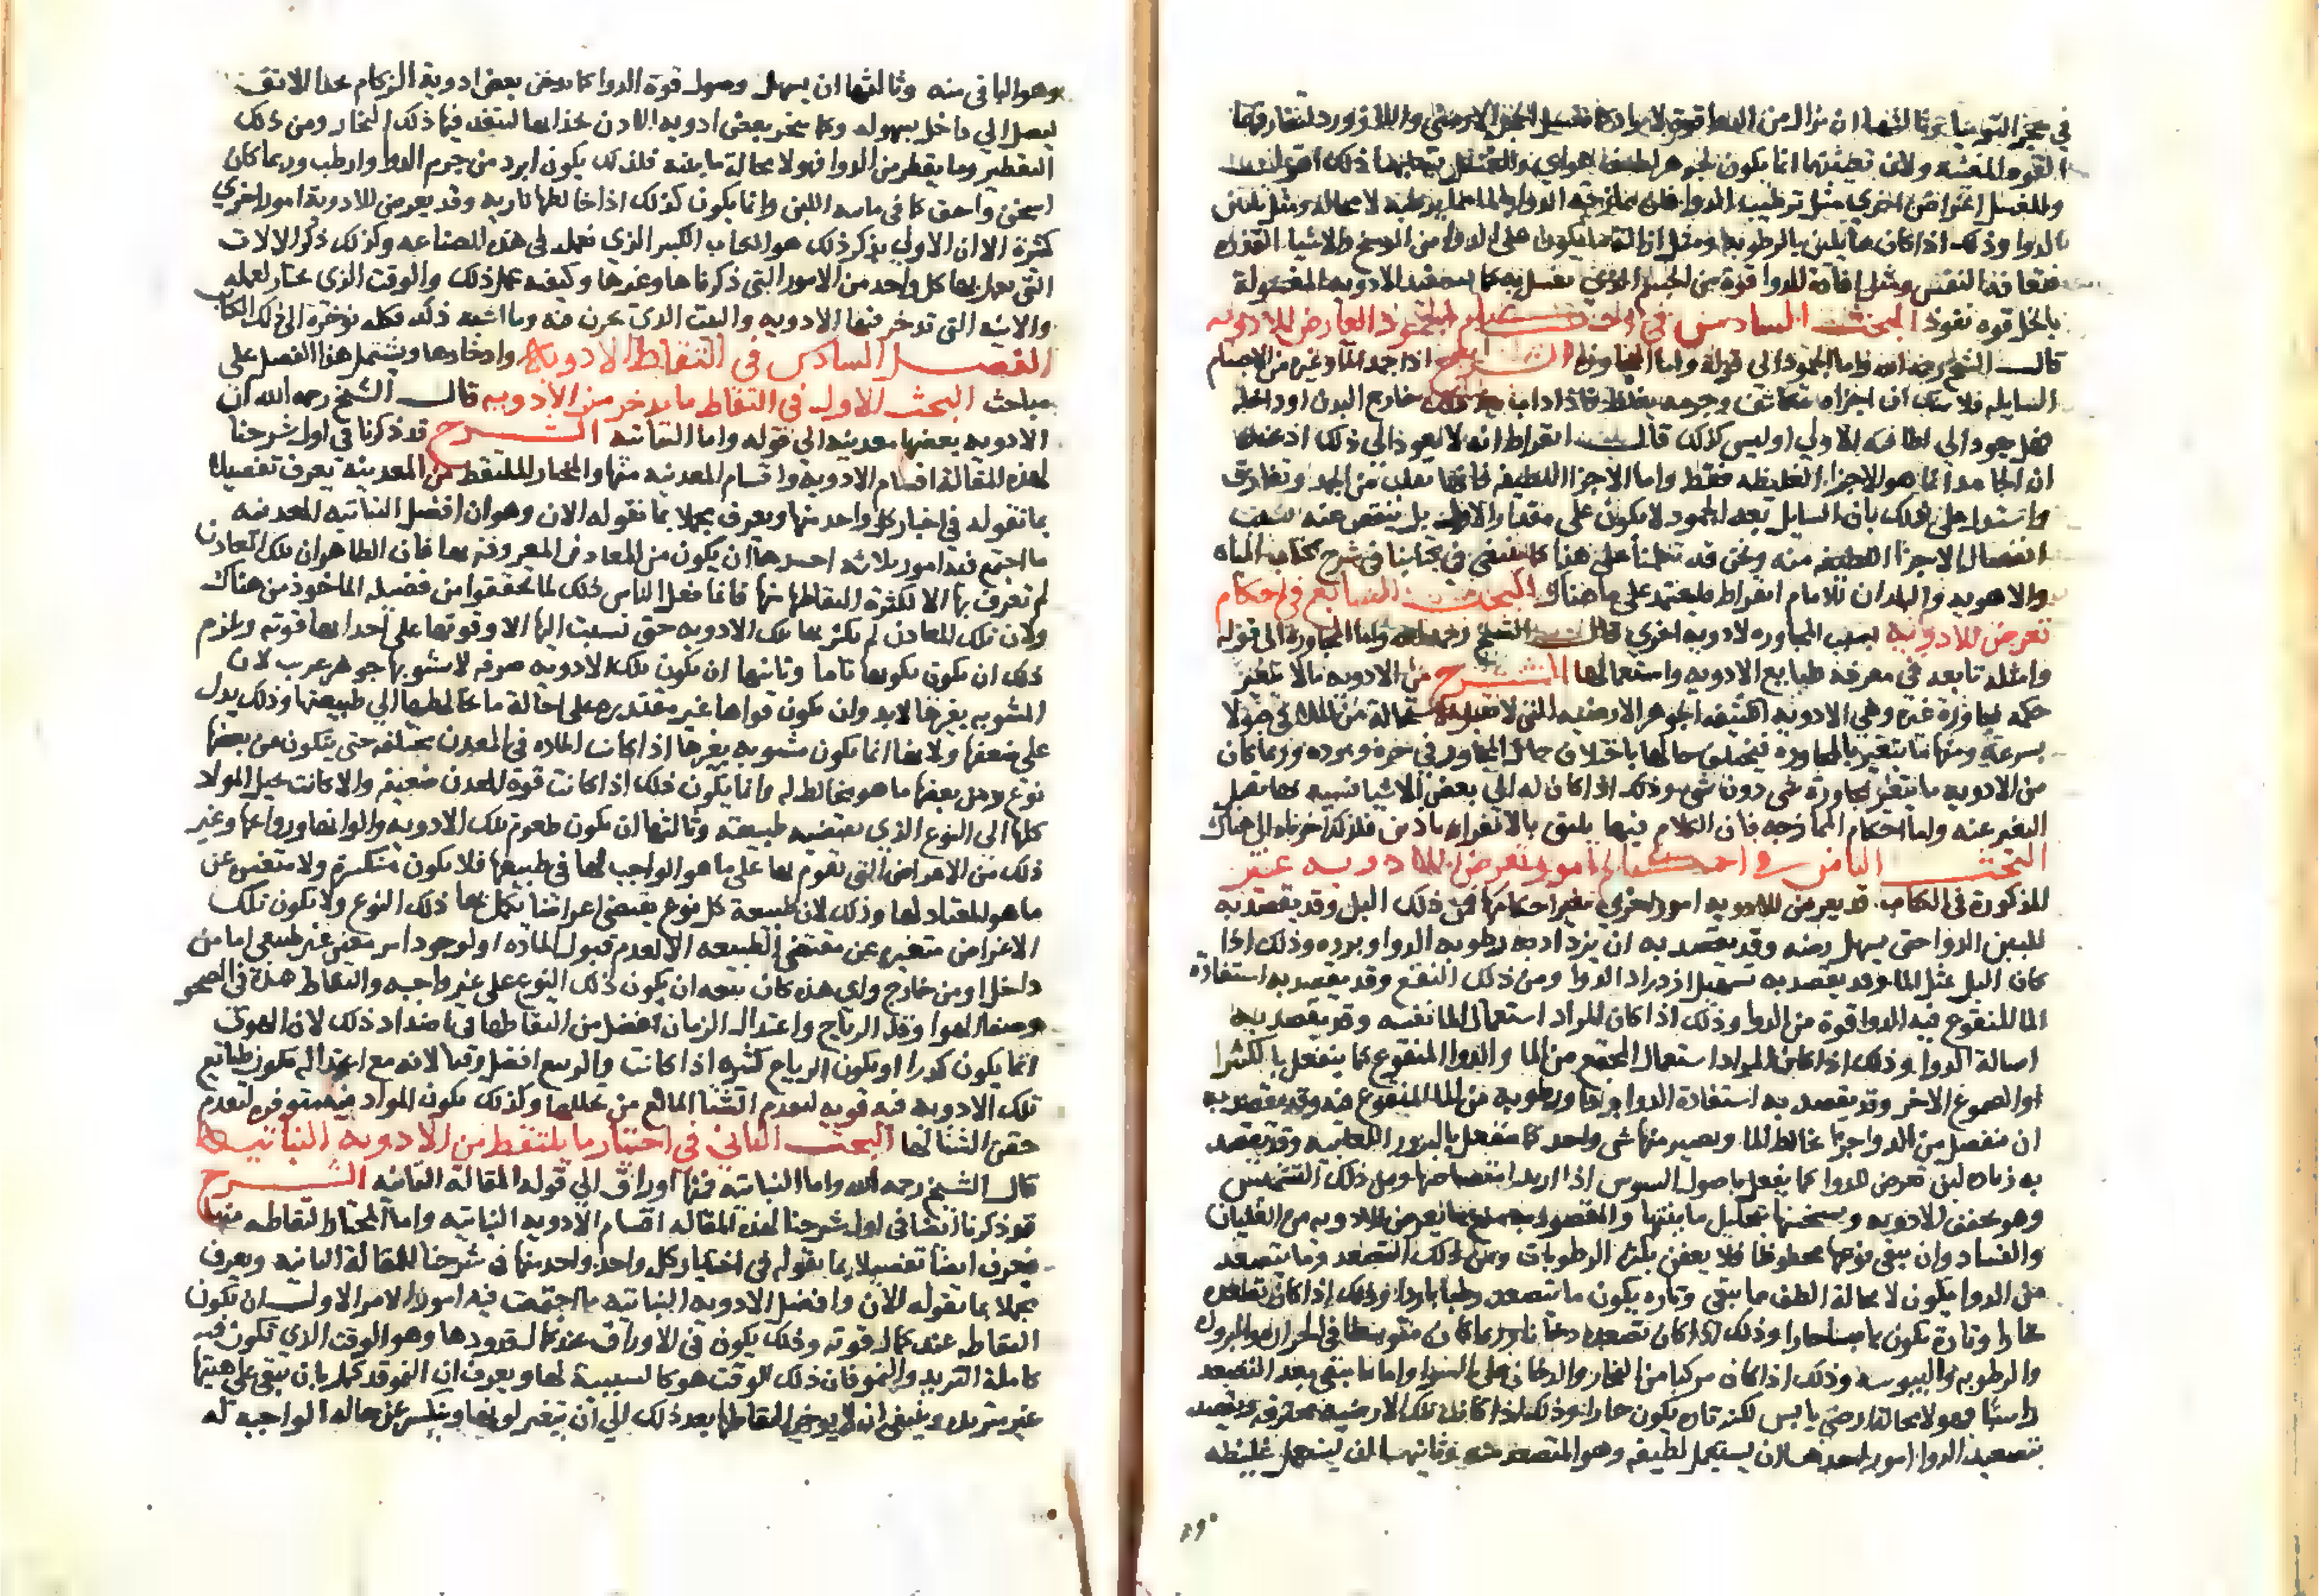 في الدوا قوة
القوة ولان انما يكون لجوهر لطيف هوائي ذلك
وللغسل اغراض اخرى مثل ترطيب الدوا فان الدوا لا محالة ومثل
الدوا وذلك اذا كان مما يلين بالرطوبة ومثل ازالة ما يكون على الدوا من الوسخ والاشيا القذرة
ومثل افادة الدوا قوة من الذي يغسل به كما الادوية المغسولة
بالخل قوة نفوذ البحث السادس في احكام الجمود العارض للادوية
قال الشيخ رحمه الله واما الجمود الى قوله واما المجاورة الشرح اذا جمد الما وغيره من الاجسام
السايلة فلا شك ان اجزاه تتكاثف خارج البدن او داخله
فهل يعود الى لطافته الاولى اوليس كذلك قال ابقراط انه لا يعود الى ذلك اذ عنده
ان الجامد انما هو الاجزا الغليظة فقط واما الاجزا اللطيفة فانها تفلت من الجمد وتفارق
واستدل على ذلك بان السايل بعد الجمود لا يكون على مقداره الاول بل ينقص عنه بسبب
انفصال الاجزا اللطيفة منه ونحن قد تكلمنا على هذا في كتابنا في شرح كتاب المياه
والاهوية والبلدان للامام ابقراط فليعتمد على ما هناك البحث السابع في احكام
تعرض للادوية بسبب المجاورة لادوية اخرى قال الشيخ رحمه الله واما المجاورة الى قوله
وامثله نافعة في معرفة طبايع الادوية واستعمالها الشرح من الادوية ما لا يتغير
حكمه لمجاورة غيره وهي الادوية الكثيفة الجوهر الارضية التي لا تقبل الاستحالة
بسرعة ومنها ما يتغير بالمجاورة فيختلف حالها باختلاف حال المجاور في حره وبرده وربما كان
من الادوية ما يتغير لمجاورة شي دون شي وذلك اذا كان له الى بعض الاشيا نسبة بها يقبل
التغير عنه واما احكام الممازجة فان الكلام فيها يليق بالاقراباذين فلذلك اخرناه الى هناك
البحث الثامن في احكام امور تعرض للادوية غير
المذكورة في الكتاب قد يعرض للادوية امور اخرى تغير احكامها فمن ذلك البل وقد يقصد به
تليين الدوا حتى يسهل رضه وقد يقصد به ان يزداد به رطوبة الدوا وبرده وذلك اذا
كان البل بمثل الما وقد يقصد به تسهيل ازدراد الدوا ومن ذلك النقع وقد يقصد به استفادة
الما المنقوع فيه الدوا قوة من الدوا وذلك اذا كان المراد استعمال الما نفسه وقد يقصد به
اسالة الدوا وذلك اذا كان المراد استعمال المجتمع من الما والدوا المنقوع كما يفعل بالكثيرا
او الصموغ الاخر وقد يقصد به استفادة الدوا ورطوبة من الما المنقوع فيه وقد يقصد به
ان ينفصل من الدوا جز يخالط الما ويصير منهما شي واحد كما يفعل بالبزور اللعابية وقد يقصد
به زيادة لين تعرض للدوا كما يفعل باصول السوس اذا اريد ومن ذلك التشميس
وهو يجفف الادوية ويسخنها بتحليل مائيتها والمقصود به منع ما يعرض للادوية من الغليان
والفساد وان يبقى نوعها محفوظا فلا يعفن بكثرة الرطوبات ومن ذلك التصعيد وما يتصعد
من الدوا يكون لا محالة الطف مما يبقى وتارة يكون ما يتصعد رطبا باردا وذلك اذا كان
بخارا وتارة يكون يابسا حارا وذلك اذا كان تصعده دخانا وربما كان متوسطا في الحرارة والبرودة
والرطوبة واليبوسة وذلك اذا كان مركبا من البخار والدخان على السوا واما ما يبقى بعد التصعيد
راسبا فهو لا محالة ارضي يابس لكنه تارة يكون حارا وذلك اذا كانت تلك الارضية محترقة ويقصد
بتصعيد الدوا امور احدها ان يستعمل لطيفه وهو المتصعد منه وثانيها ان يستعمل غليظه
وهو الباقي منه وثالثها ان يسهل وصول قوة الدوا كما بعض ادوية الزكام تحت الانف
ليصل الى داخل بسهولة وكما يبخر بعض ادوية الاذن بحذائها لينفذ فيها ذلك البخار ومن ذلك
التقطير وما يقطر من الدوا فهو لا محالة مائيته فلذلك يكون ابرد من جرم الدوا وارطب وربما كان
اسخن واجف كما في مائية اللبن وانما يكون كذلك اذا خالطها نارية وقد يعرض للادوية امور اخرى
كثيرة الا ان الاولى بذكر ذلك هو الكتاب الكبير الذي نعمله في هذه الصناعة وكذلك ذكر الالات
التي يعمل بها كل واحد من الامور التي ذكرناها وغيرها وكيفية عمل ذلك والوقت الذي يختار لعمله
والانية التي تدخر فيها الادوية والبيت الذي تخزن فيه وما اشبه ذلك فكله نؤخره الى ذلك الكتاب
الفصل السادس في التقاط الادوية وادخارها ويشتمل هذا الفصل على
مباحث البحث الاول في التقاط ما يدخر من الادوية قال الشيخ رحمه الله ان
الادوية بعضها معدنية الى قوله واما النباتية الشرح قد ذكرنا في اول شرحنا
لهذه المقالة اقسام الادوية واقسام المعدنية منها والمختار للملتقط من المعدنية يعرف تفصيلا
بما نقوله في اختيار كل واحد منها ويعرف مجملا بما نقوله الان وهو ان افضل المعدنية
ما اجتمع فيه امور ثلاثة احدها ان يكون من المعادن المعروفة بها فان الظاهر ان تلك المعادن
لم تعرف بها الا لكثرة التقاطها منها فانما فعل الناس ذلك لما تحققوا من فضيلة الماخوذ من هناك
ولان تلك المعادن لم تكثر بها تلك الادوية حتى نسبت اليها الا وقوتها على احداثها قوية ويلزم
ذلك ان يكون تكونها تاما وثانيها ان تكون تلك الادوية صرفة لا يشوبها جوهر غريب لان
المشوبة بغيرها لابد وان تكون قواها غير مقتدرة على احالة ما يخالطها الى طبيعتها وذلك يدل
على ضعفها ولانها انما تكون مشوبة بغيرها اذا كانت المادة في المعدن مختلفة حتى يتكون من بعضها
نوع ومن بعضها ما هو مخالط له وانما يكون ذلك اذا كانت قوة المعدن ضعيفة والا كانت تحيل المواد
كلها الى النوع الذي تقتضيه طبيعته وثالثها ان تكون طعوم تلك الادوية والوانها وروائحها وغير
ذلك من الاعراض التي تقوم بها على ما هو الواجب لها في طبيعتها فلا يكون منكسرة ولا متغيرة عن
ما هو المعتاد لها وذلك لان طبيعة كل نوع تقتضي اعراضا يكمل بها ذلك النوع ولا تكون تلك
الاعراض متغيرة عن مقتضى الطبيعة الا لعدم قبول المادة او لوجود امر مغير غير طبيعي اما من
داخل او من خارج واي هذه كان تبعه ان يكون ذلك النوع على غير واجبه والتقاط هذه في الصحو
وصفا الهوا وقلة الرياح واعتدال الزمان افضل من التقاطها في اضداد ذلك لان الهوا
انما يكون كدرا او تكون الرياح كثيرة اذا كانت والربيع افضل وقتا لانه مع اعتداله تكون طبايع
تلك الادوية فيه قوية لتقدم الشتا المانع من تحللها وكذلك يكون المواد متوفرة لتقدم
حقن الشتا لها البحث الثاني في اختيار ما يلتقط من الادوية النباتية
قال الشيخ رحمه الله واما النباتية فمنها اوراق الى قوله المقالة الثانية الشرح
قد ذكرنا ايضا في اول شرحنا لهذه المقالة اقسام الادوية النباتية واما المختار التقاطه منها
فيعرف ايضا تفصيلا بما نقوله في اختيار كل واحد واحد منها في شرحنا للمقالة الثانية ويعرف
مجملا بما نقوله الان وافضل الادوية النباتية ما اجتمعت فيه امور الامر الاول ان يكون
التقاطه عند كمال قوته وذلك يكون في الاوراق عند كمال قدودها وهو الوقت الذي تكون فيه
كاملة التزيد والنمو فان ذلك الوقت هو كالشبيبة لها ويعرف ان النمو قد كمل بان تبقى على هيئتها
غير متزيدة وينبغي ان لا يؤخر التقاطها بعد ذلك الى ان يتغير لونها وينكسر عن حاله الواجبة له